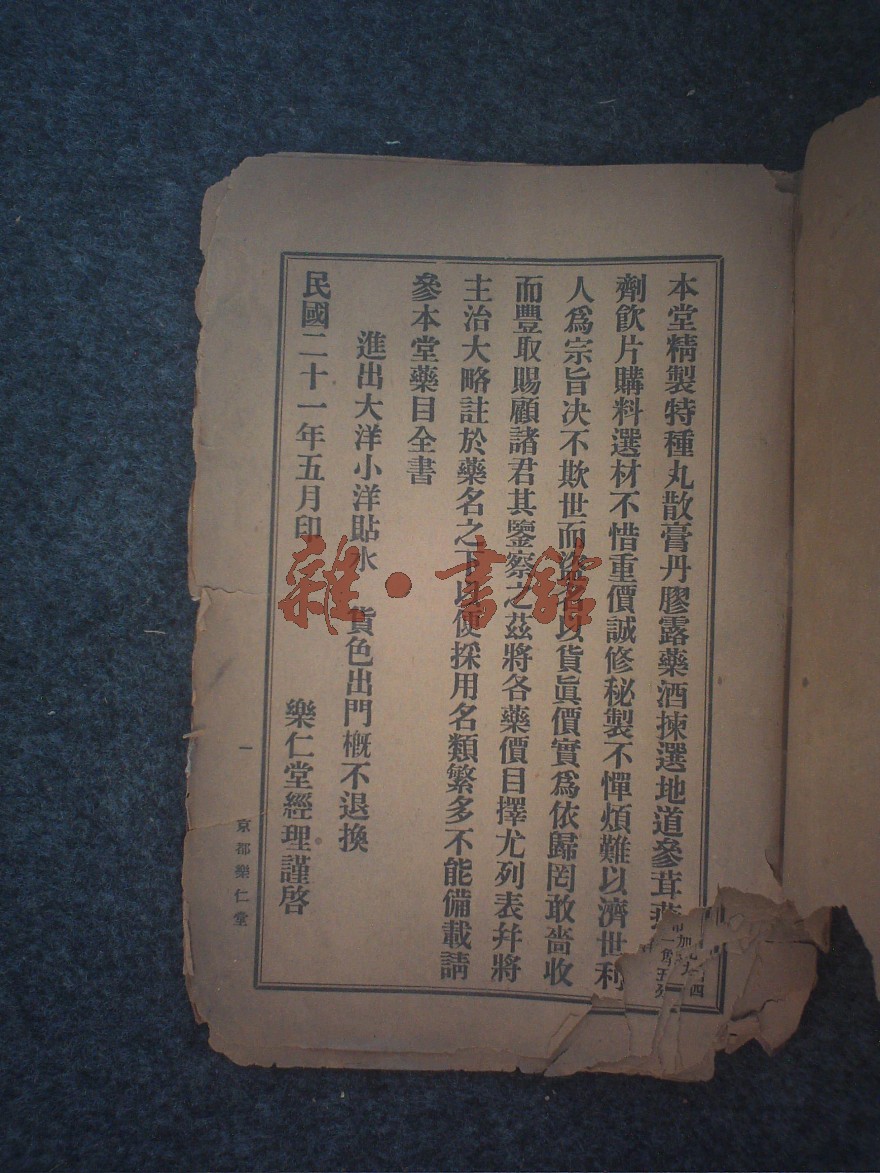 本堂精製特種丸散膏丹膠露藥酒揀選地道參茸燕
劑飲片購料選材不惜重價誠修秘製不憚煩難以濟世利
人爲宗旨決不欺世而盜名以貨眞價實爲依歸罔敢嗇收
而豐取賜顧諸君其鑒察之茲將各藥價目擇尤列表幷將
主治大略註於藥名之下以便採用名類繁多不能備載請
參本堂藥目全書
進出大洋小洋貼水 貨色出門槪不退換
民國二十一年五月印 樂仁堂經理謹啓
一 京都樂仁堂
四
加
一角五分
雜·書館